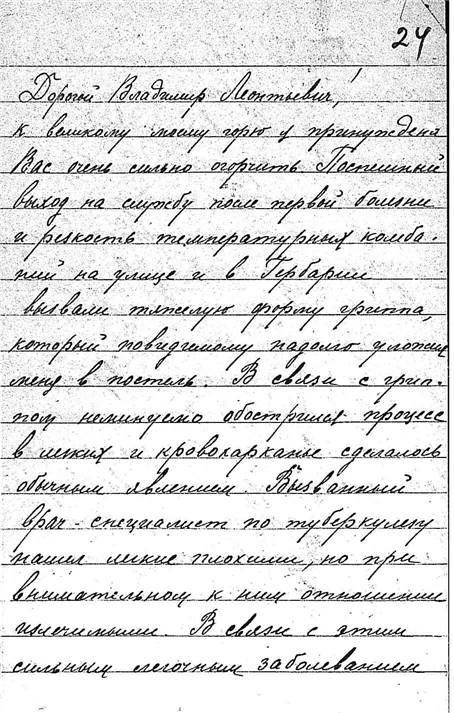 24
Дорогой Владимир Леонтьевич!
К великому моему горю я принуждена
Вас очень сильно огорчить. Поспешный
выход на службу после первой болезни
и резкость температурных колеба-
ний на улице и в Гербарии
вызвали тяжелую форму гриппа,
который повидимому надолго уложил
меня в постель. В связи с грип-
пом неминуемо обострился процесс
в легких и кровохарканье сделалось
обычным явлением. Вызванный
врач-специалист по туберкулезу
нашел легкие плохими, но при
внимательном к ним отношении
излечимыми. В связи с этим
сильным легочным заболеванием